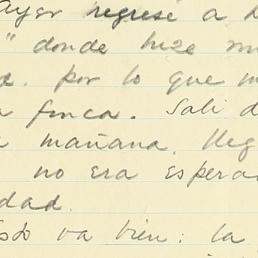 Ayer regresé a
" donde hice
por lo que
finca. Salí d
mañana. Lleg
no era espera
dad.
sto va bien: la